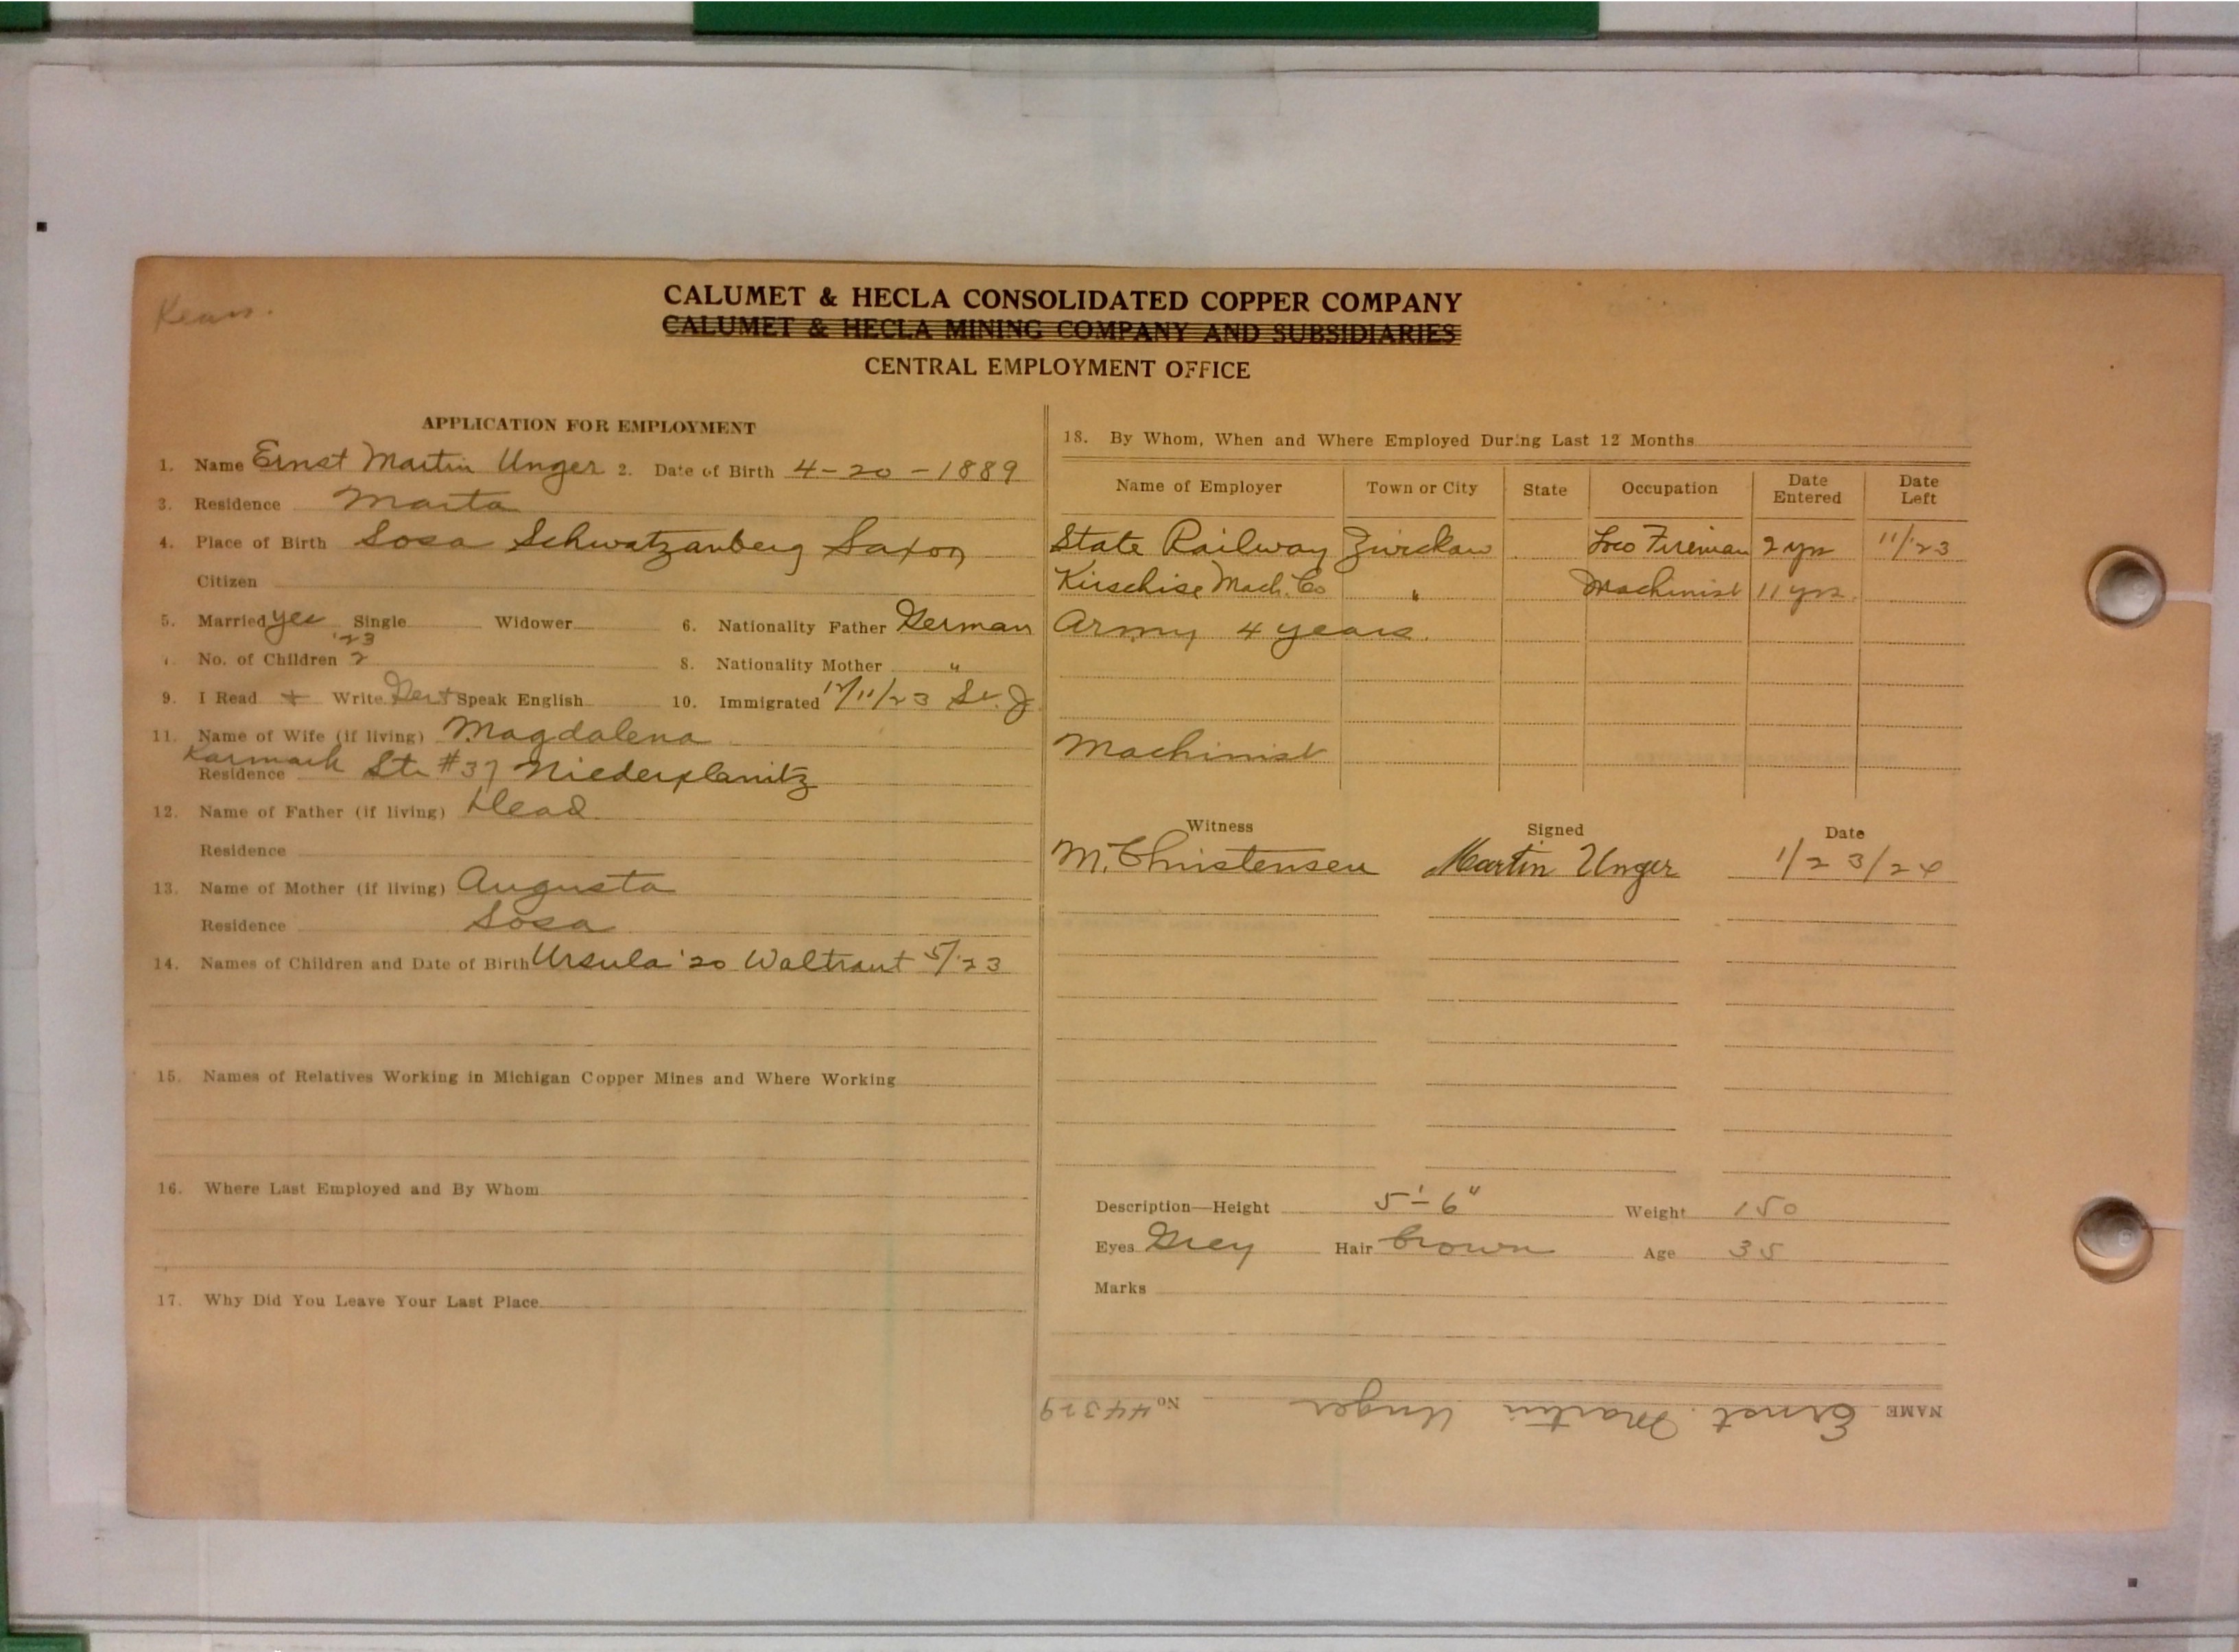 Kears.
CALUMET & HECLA CONSOLIDATED COPPER COMPANY
CALUMET & HECLA MINING COMPANY AND SUBSIDIARIES
CENTRAL EMPLOYMENT OFFICE
APPLICATION FOR EMPLOYMENT
1. Name Ernst Martin Unger 2. Date of Birth 4-20-1889
3. Residence
4. Place of Birth Sosa Schwatzanberg Saxon
Citizen
5. Married yes '23 Single Widower 6. Nationality Father German
7. No. of Children 2 8. Nationality Mother "
9. I Read + Write Speak English 10. Immigrated 12/11/23
11. Name of Wife (if living) Magdalena
Residence Karmash Str #37 Niederplanitz
12. Name of Father (if living) Dead
Residence
13. Name of Mother (if living) Augusta
Residence Sosa
14. Names of Children and Date of Birth Ursula '20 Waltraut 5/'23
15. Names of Relatives Working in Michigan Copper Mines and Where Working
16. Where Last Employed and By Whom
17. Why Did You Leave Your Last Place
18. By Whom, When and Where Employed During Last 12 Months
Name of Employer Town or City State Occupation Date Entered Date Left
State Railway Zwickau Loco Fireman 2 yrs 11/'23
Kirschise Mach. Co " Machinist 11 yrs.
Army 4 years.
Machinist
Witness Signed Date
M. Christensen Martin Unger 1/23/24
Description—Height 5'-6" Weight 150
Eyes Grey Hair brown Age 35
Marks
NAME Ernst Martin Unger No. 44329